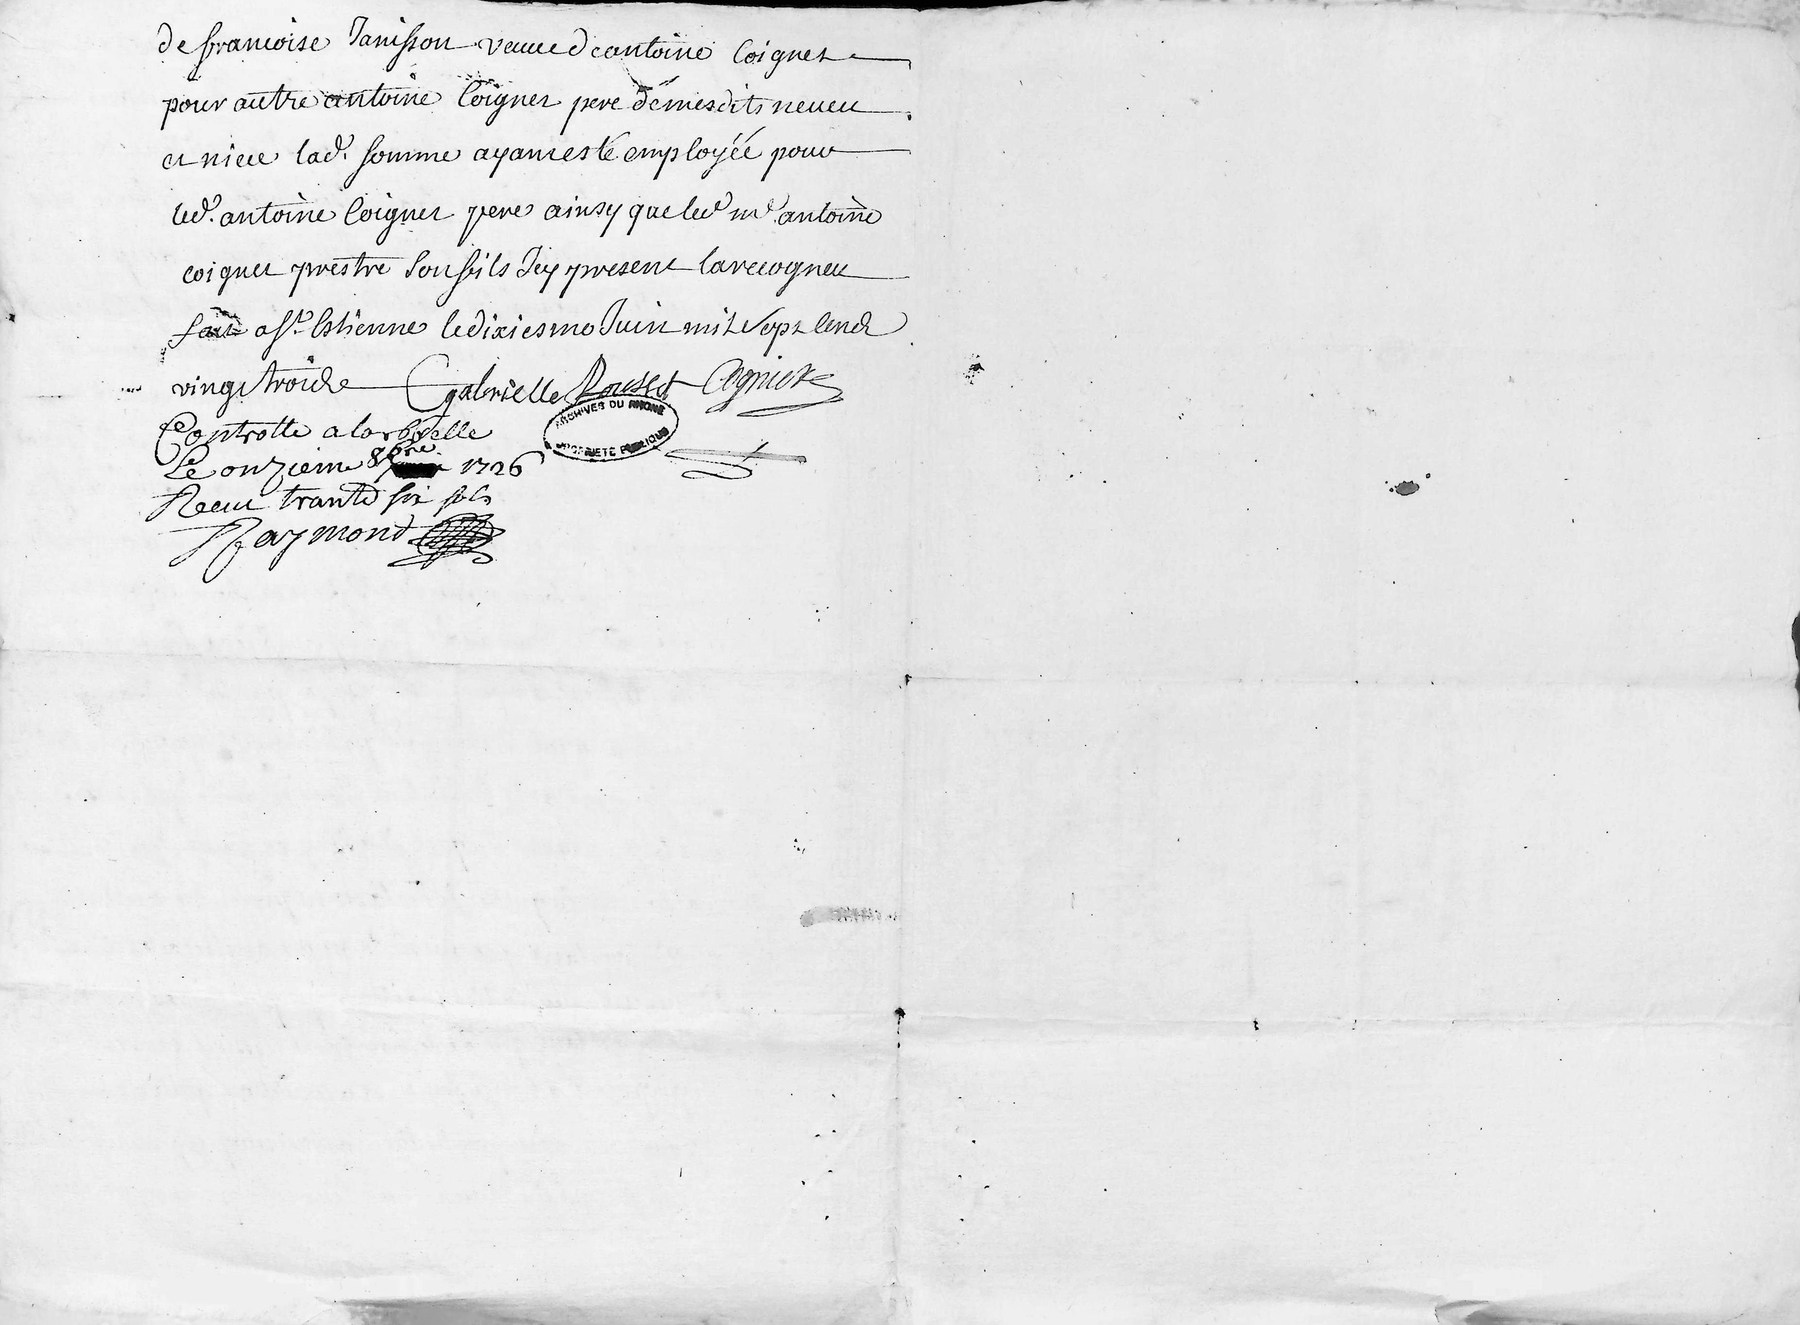 de francoise Janisson veuue de antoine Coignet
pour autre antoine Coignet pere de mesdits neueu
et niece lad. somme ayant esté employée pour
led. antoine Coignet pere ainsy que led. mr. antoine
coignet prestre son fils Icy present la recogneu
fait a st. Estienne le dixiesme Juin mil sept cend
vingt troide gabrielle Rouset Cogniet
ARCHIVES DU RHONE
PROPRIETE PUBLIQUE
Controlle a larbrelle
Le onzieme 8bre 1726
Receu trante six sols
Raymond